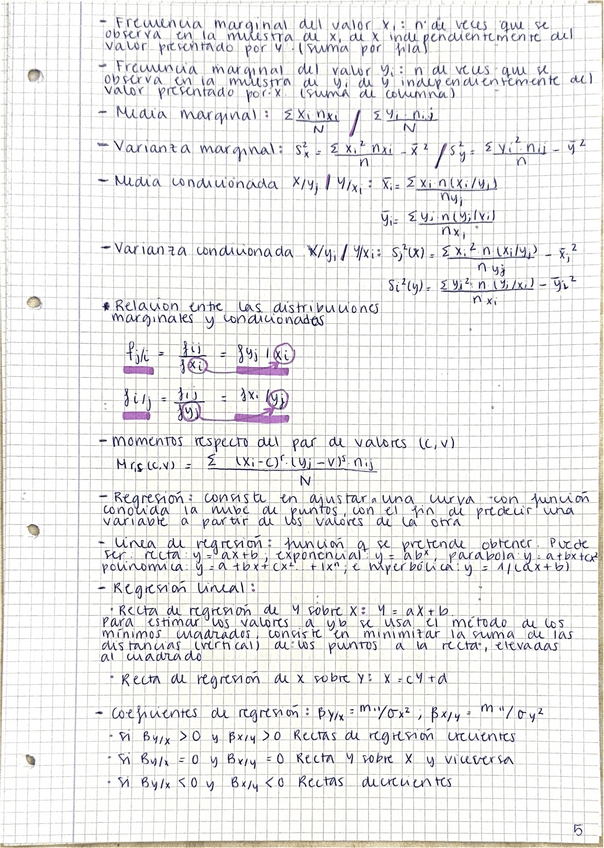 - Frecuencia marginal del valor xi: nº de veces que se
observa en la muestra de xi de x independientemente del
valor presentado por y. (suma por fila)
- Frecuencia marginal del valor yi: n de veces que se
observa en la muestra de yi de y independientemente del
valor presentado por x (suma de columna)
- Media marginal: Σ xi nxi / N / Σ yi · nij / N
- Varianza marginal: S²x = Σ xi² nxi / n - x̄² / S²y = Σ yi² · nij / n - ȳ²
- Media condicionada x/yj / y/xi: x̄i = Σ xi n(xi/yj) / nyj
ȳi = Σ yi n(yj/xi) / nxi
- Varianza condicionada x/yi / y/xi: Sj²(x) = Σ xi² n(xi/yj) / nyj - x̄i²
Si²(y) = Σ yj² · n(yj/xi) / nxi - ȳi²
* Relacion entre las distribuciones
marginales y condicionadas
fj/i = fij / fxi = fyj / xi
fi/j = fij / fyj = fxi / yj
- Momentos respecto del par de valores (c, v)
Mr,s (c,v) = Σ (xi-c)ʳ · (yj-v)ˢ · nij / N
- Regresión: consiste en ajustar a una curva con función
conocida la nube de puntos, con el fin de predecir una
variable a partir de los valores de la otra
- Línea de regresión: función q se pretende obtener. Puede
ser: recta: y = ax+b, exponencial: y = abˣ, parábola: y = a+bx+cx²
polinomia: y = a+bx+cx² ... +lxⁿ; e hiperbólica: y = 1/(ax+b)
- Regresión lineal:
· Recta de regresión de Y sobre X: Y = aX+b
Para estimar los valores a y b se usa el método de los
mínimos cuadrados, consiste en minimizar la suma de las
distancias (vertical) de los puntos a la recta, elevadas
al cuadrado
· Recta de regresión de X sobre Y: X = cY+d
- Coeficientes de regresión: βy/x = m11/σx², βx/y = m11/σy²
· Si βy/x > 0 y βx/y > 0 Rectas de regresión crecientes
· Si βy/x = 0 y βx/y = 0 Recta Y sobre X y viceversa
· Si βy/x < 0 y βx/y < 0 Rectas decrecientes
5